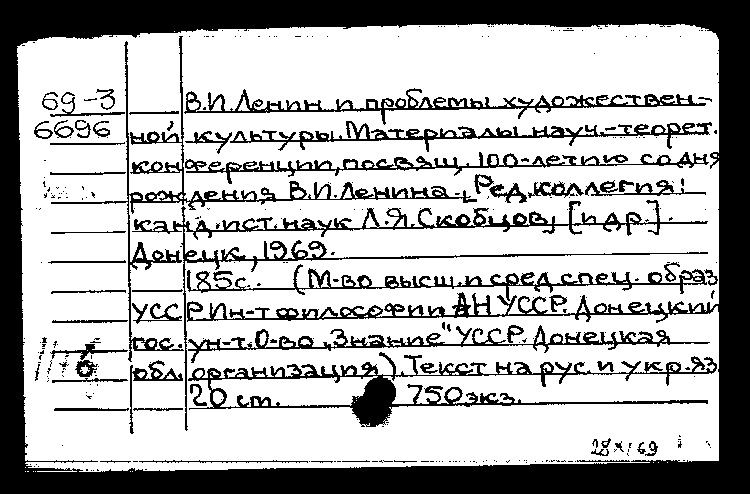 69-3 В.И.Ленин и проблемы художествен-
6696 ной культуры. Материалы науч.-теорет.
конференции, посвящ. 100-летию со дня
рождения В.И.Ленина. [Ред.коллегия:
канд.ист.наук Л.Я.Скобцов, [и др.].
Донецк, 1969.
185с. (М-во высш. и сред спец. образ
УССР. Ин-т философии АН УССР. Донецкий
гос. ун-т. О-во „Знание" УССР. Донецкая
обл. организация). Текст на рус. и укр. яз
20 см. 750экз.
28 X/69